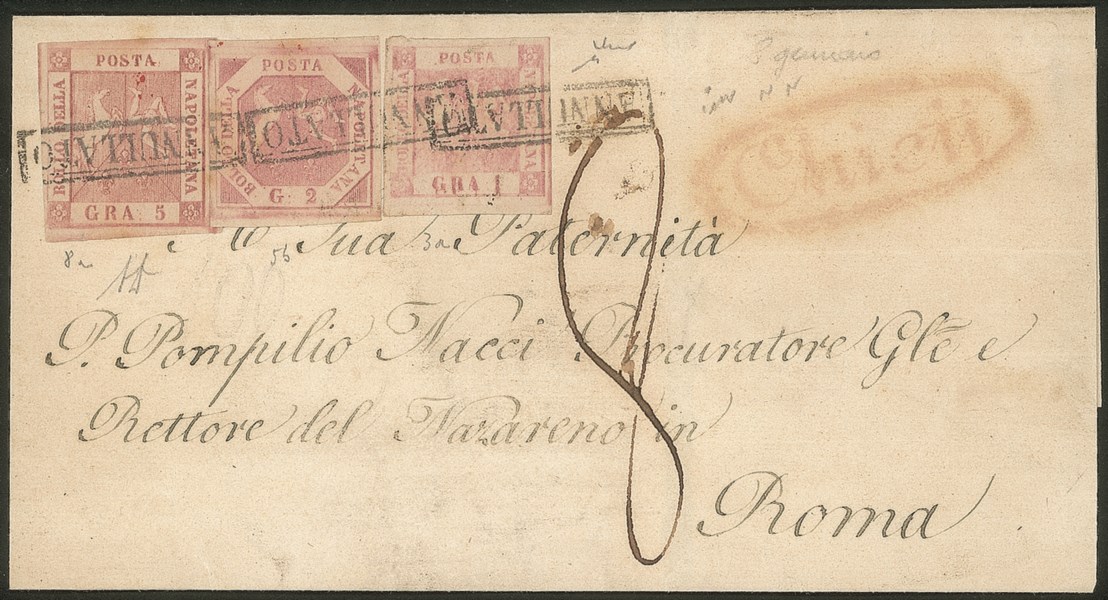 POSTA
BOLLO DELLA
NAPOLETANA
GRA 5
POSTA
BOLLO DELLA
NAPOLETANA
G. 2
POSTA
NAPOLETANA
GRA 1
ANNULLATO
ANNULLATO
ANNULLATO
8 gennaio
8
Sua Paternità
P. Pompilio Nacci Procuratore Glē e
Rettore del Nazareno in
Roma